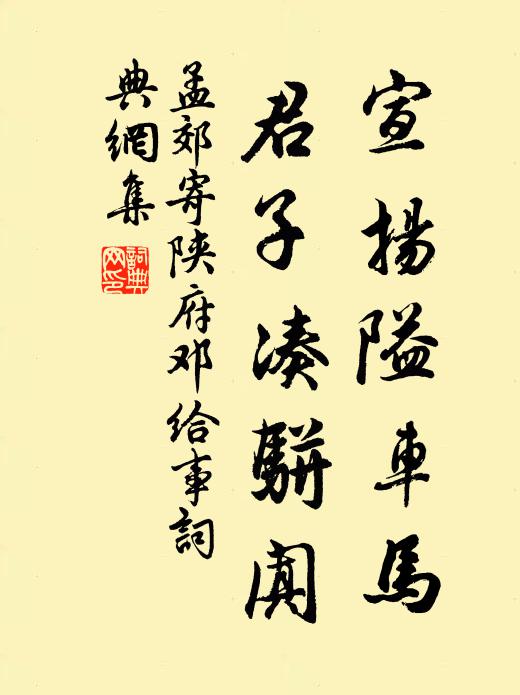 宣揚隘車馬
君子湊駢闐
孟郊寄陝府邓给事詞
典網集
詞典
网印